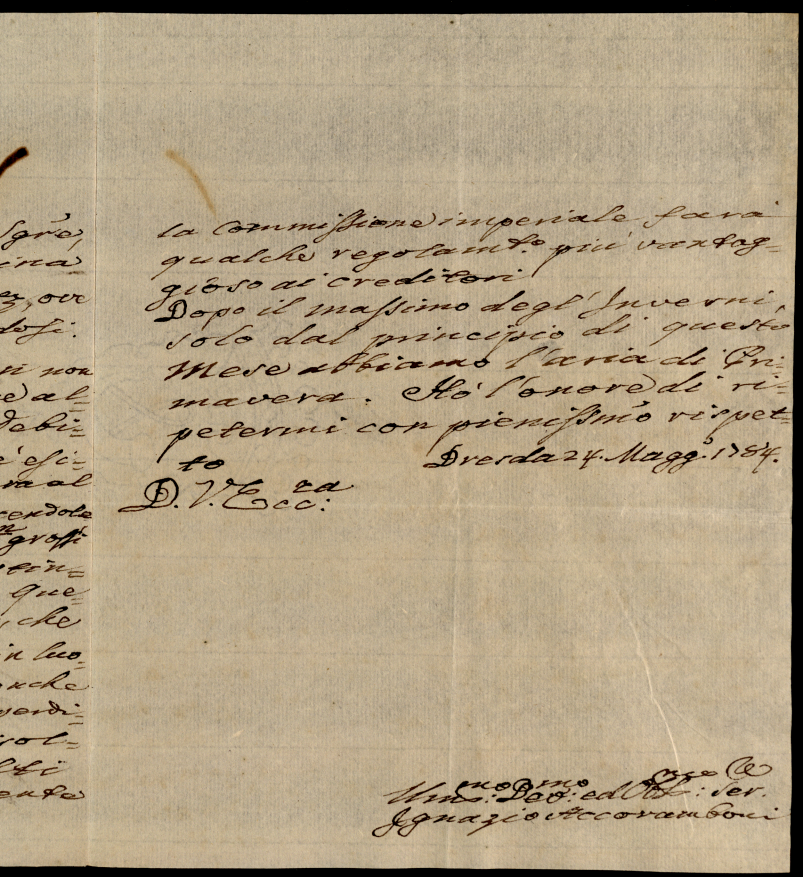 sgre
cina
ez, ove
dosi.
ri non
e al=
debi=
e' esi=
ra al
cendole
grossi
tin=
que=
, che
in luo=
anche
perdi=
sol=
lti
ente
la Commissione imperiale farà
qualche regolamto. più vantag=
gioso ai creditori
Dopo il massimo degl' Inverni,
solo dal principio di questo
Mese abbiamo l'aria di Pri=
mavera. Hò l'onore di ri=
petermi con pienissmo rispet=
to Dresda 24. Magg. 1784.
D. V. Ecc:za
Ums:mo Dev:mo ed Obb: Ser.
Ignazio Accoramboni